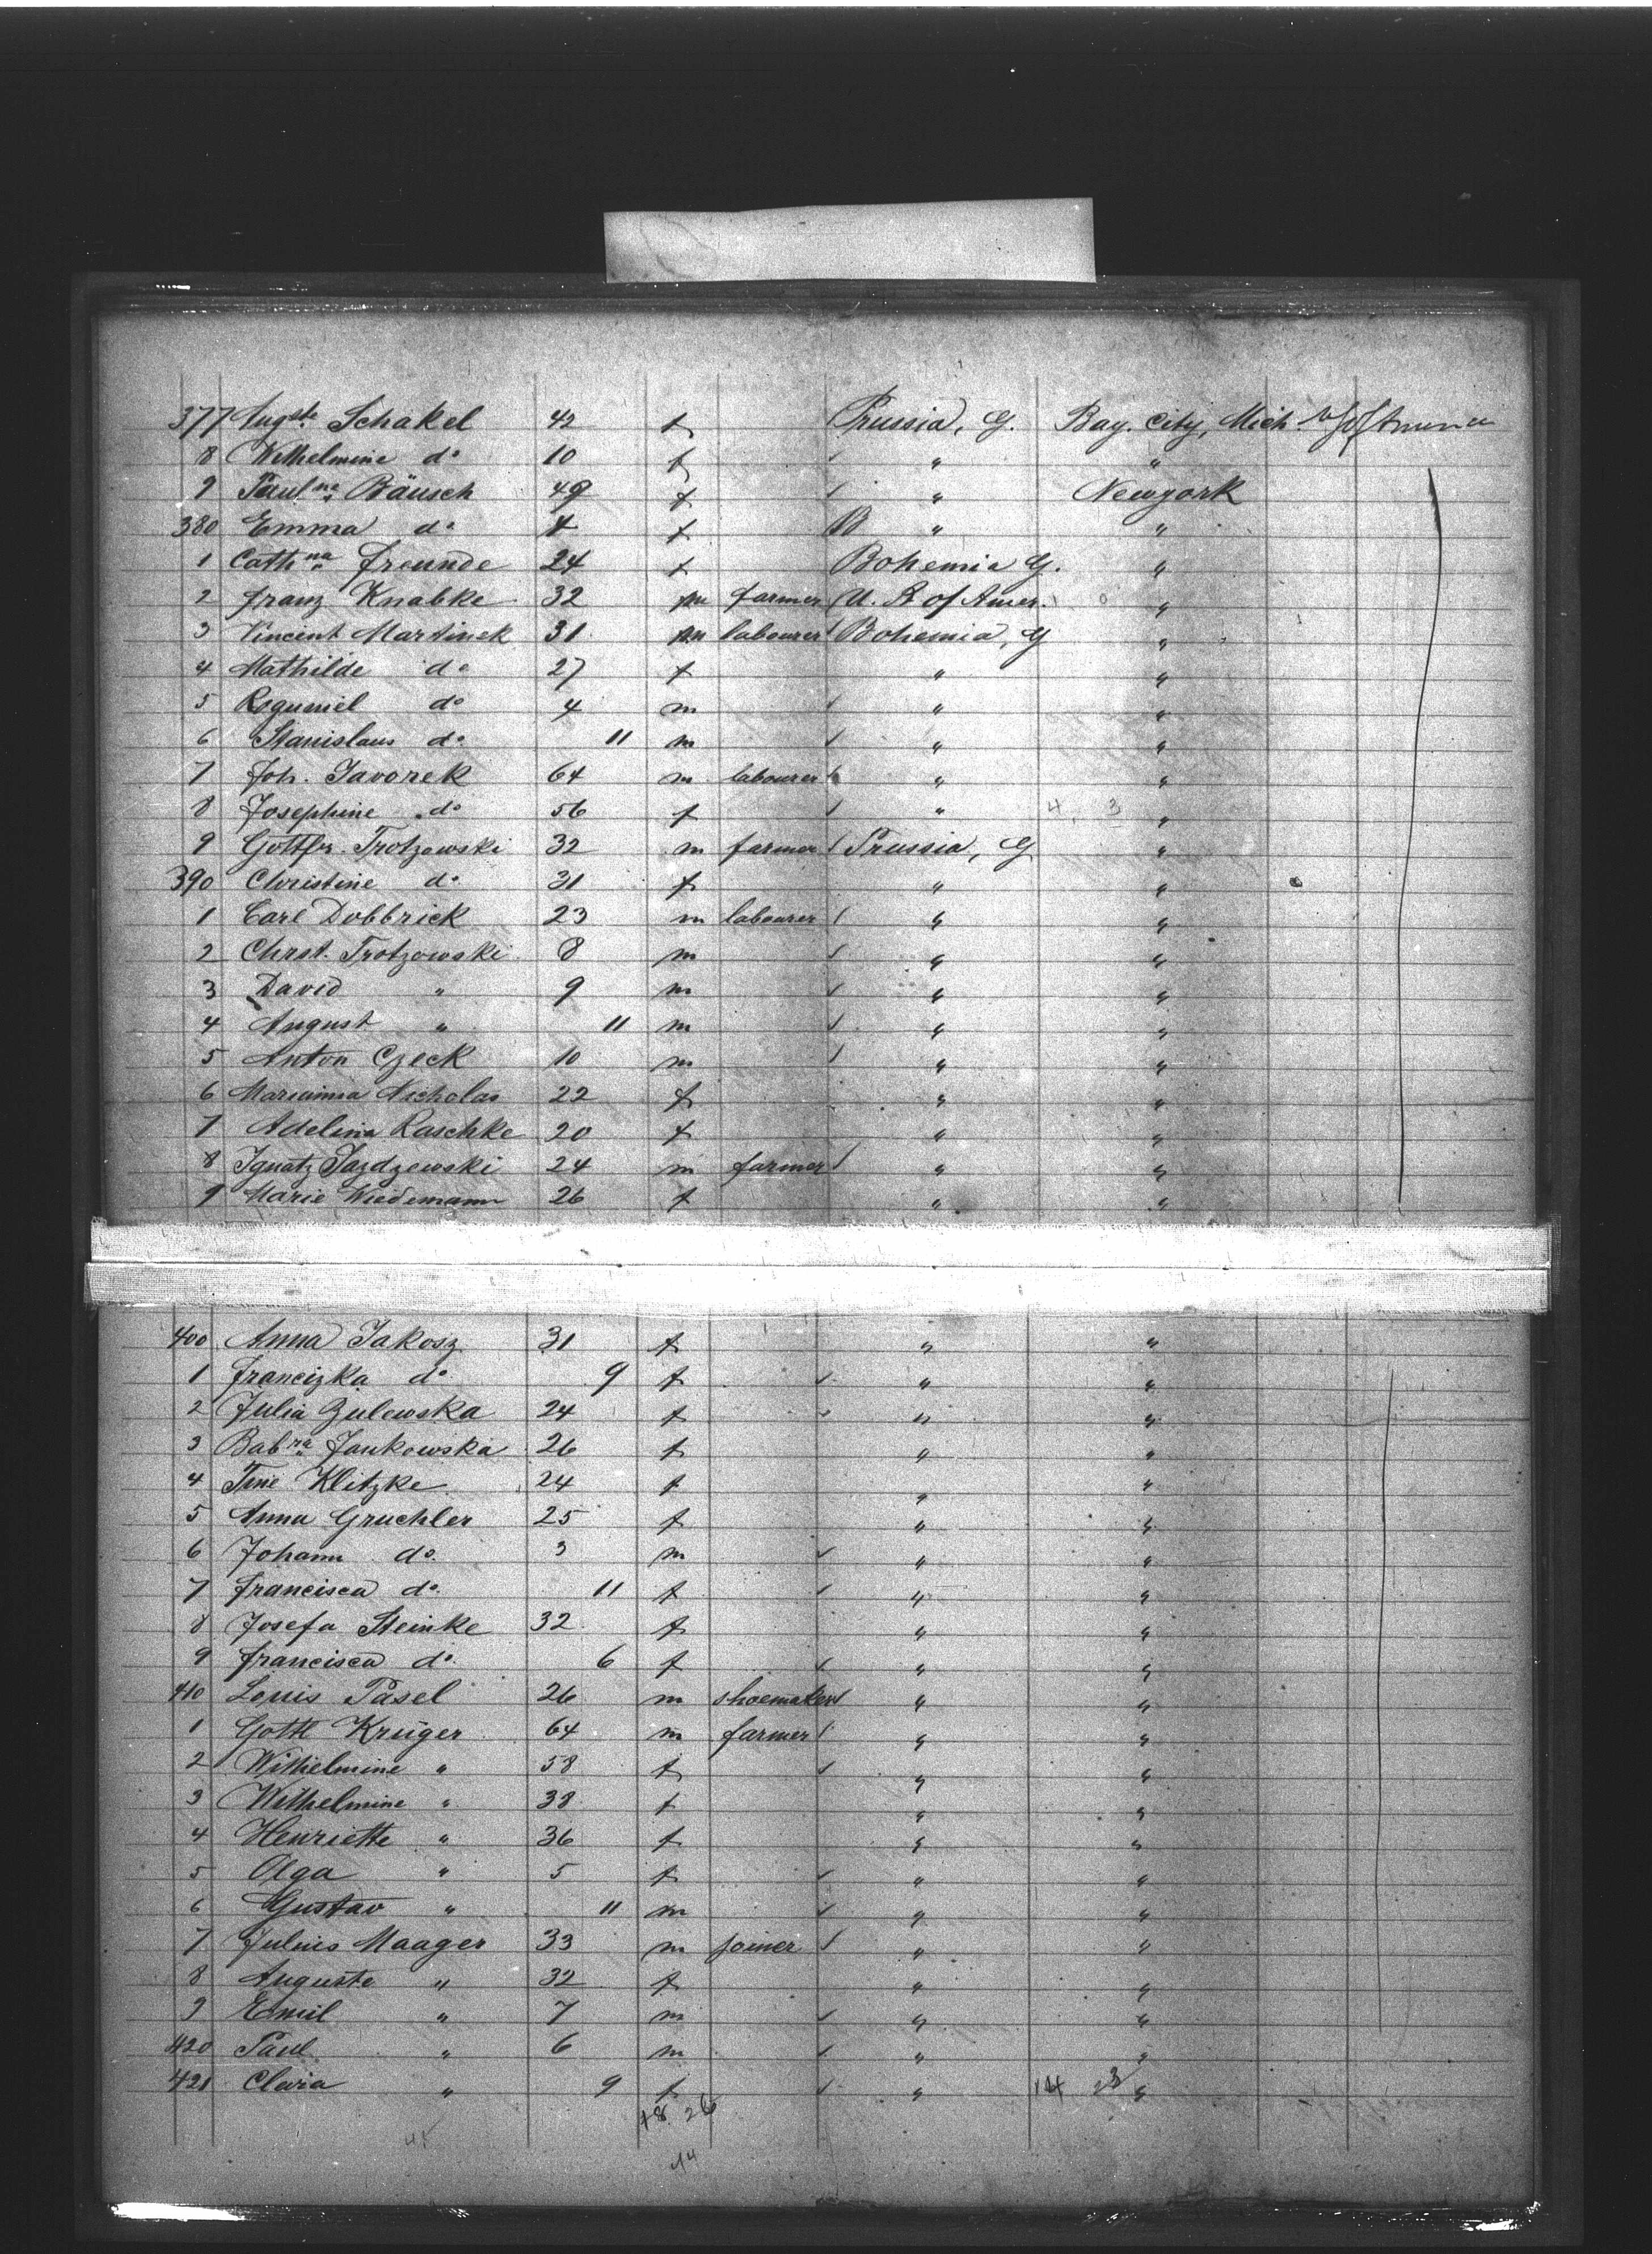 377 Augste. Schakel 42 f Prussia, G. Bay. City, Mich.
8 Wilhelmine do 10 f " "
9 Paulna. Bäusch 49 f " Newyork
380 Emma do 4 f B " "
1 Cathna. Freunde 24 f Bohemia G. "
2 Franz Knabke 32 m farmer U. S. of Amer. "
3 Vincent Martinek 31 m labourer Bohemia, G "
4 Mathilde do 27 f " "
5 Rogumiel do 4 m " "
6 Stanislaus do 11 m " "
7 Joh. Javorek 64 m labourer " "
8 Josephine do 56 f " 4, 3 "
9 Gottfr. Trotzowski 32 m farmer Prussia, G "
390 Christine do 31 f " "
1 Carl Dobbrick 23 m labourer " "
2 Chrst. Trotzowski 8 m " "
3 David " 9 m " "
4 August " 11 m " "
5 Anton Czeck 10 m " "
6 Marianna Nicholas 22 f " "
7 Adelina Raschke 20 f " "
8 Ignatz Jazdzewski 24 m farmer " "
9 Marie Wiedemann 26 f " "
400 Anna Jakosz 31 f " "
1 Francizka do 9 f " "
2 Julia Zulewska 24 f " "
3 Babra. Jankowska 26 f " "
4 Tine Klitzke 24 f " "
5 Anna Gruchler 25 f " "
6 Johann do. 3 m " "
7 Francisca do. 11 f " "
8 Josefa Steinke 32 f " "
9 Francisca do. 6 f " "
410 Louis Pasel 26 m shoemaker " "
1 Gottl Krüger 64 m farmer " "
2 Wilhelmine " 58 f " "
3 Wilhelmine " 38 f " "
4 Henriette " 36 f " "
5 Olga " 5 f " "
6 Gustav " 11 m " "
7 Julius Maager 33 m joiner " "
8 Auguste " 32 f " "
9 Emil " 7 m " "
420 Paul " 6 m " "
421 Clara " 9 f " 14 23 "
18 26
45
44